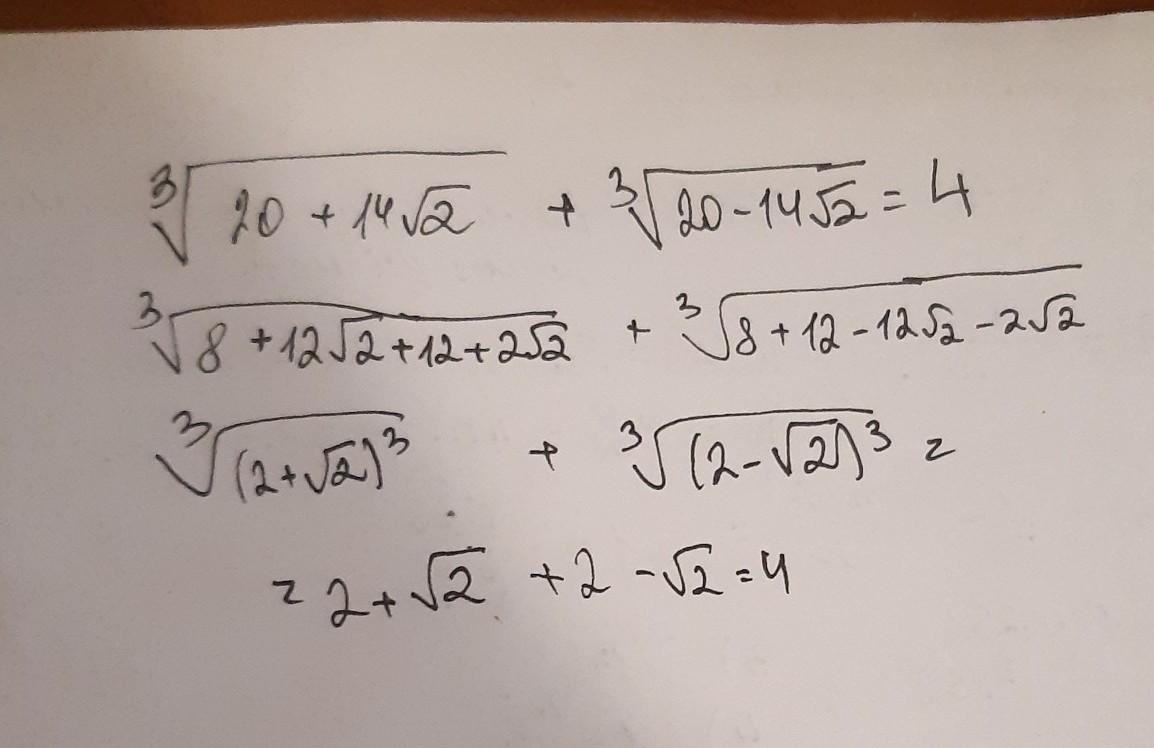 ∛(20 + 14√2) + ∛(20 - 14√2) = 4
∛(8 + 12√2 + 12 + 2√2) + ∛(8 + 12 - 12√2 - 2√2)
∛((2 + √2)³) + ∛((2 - √2)³) =
= 2 + √2 + 2 - √2 = 4